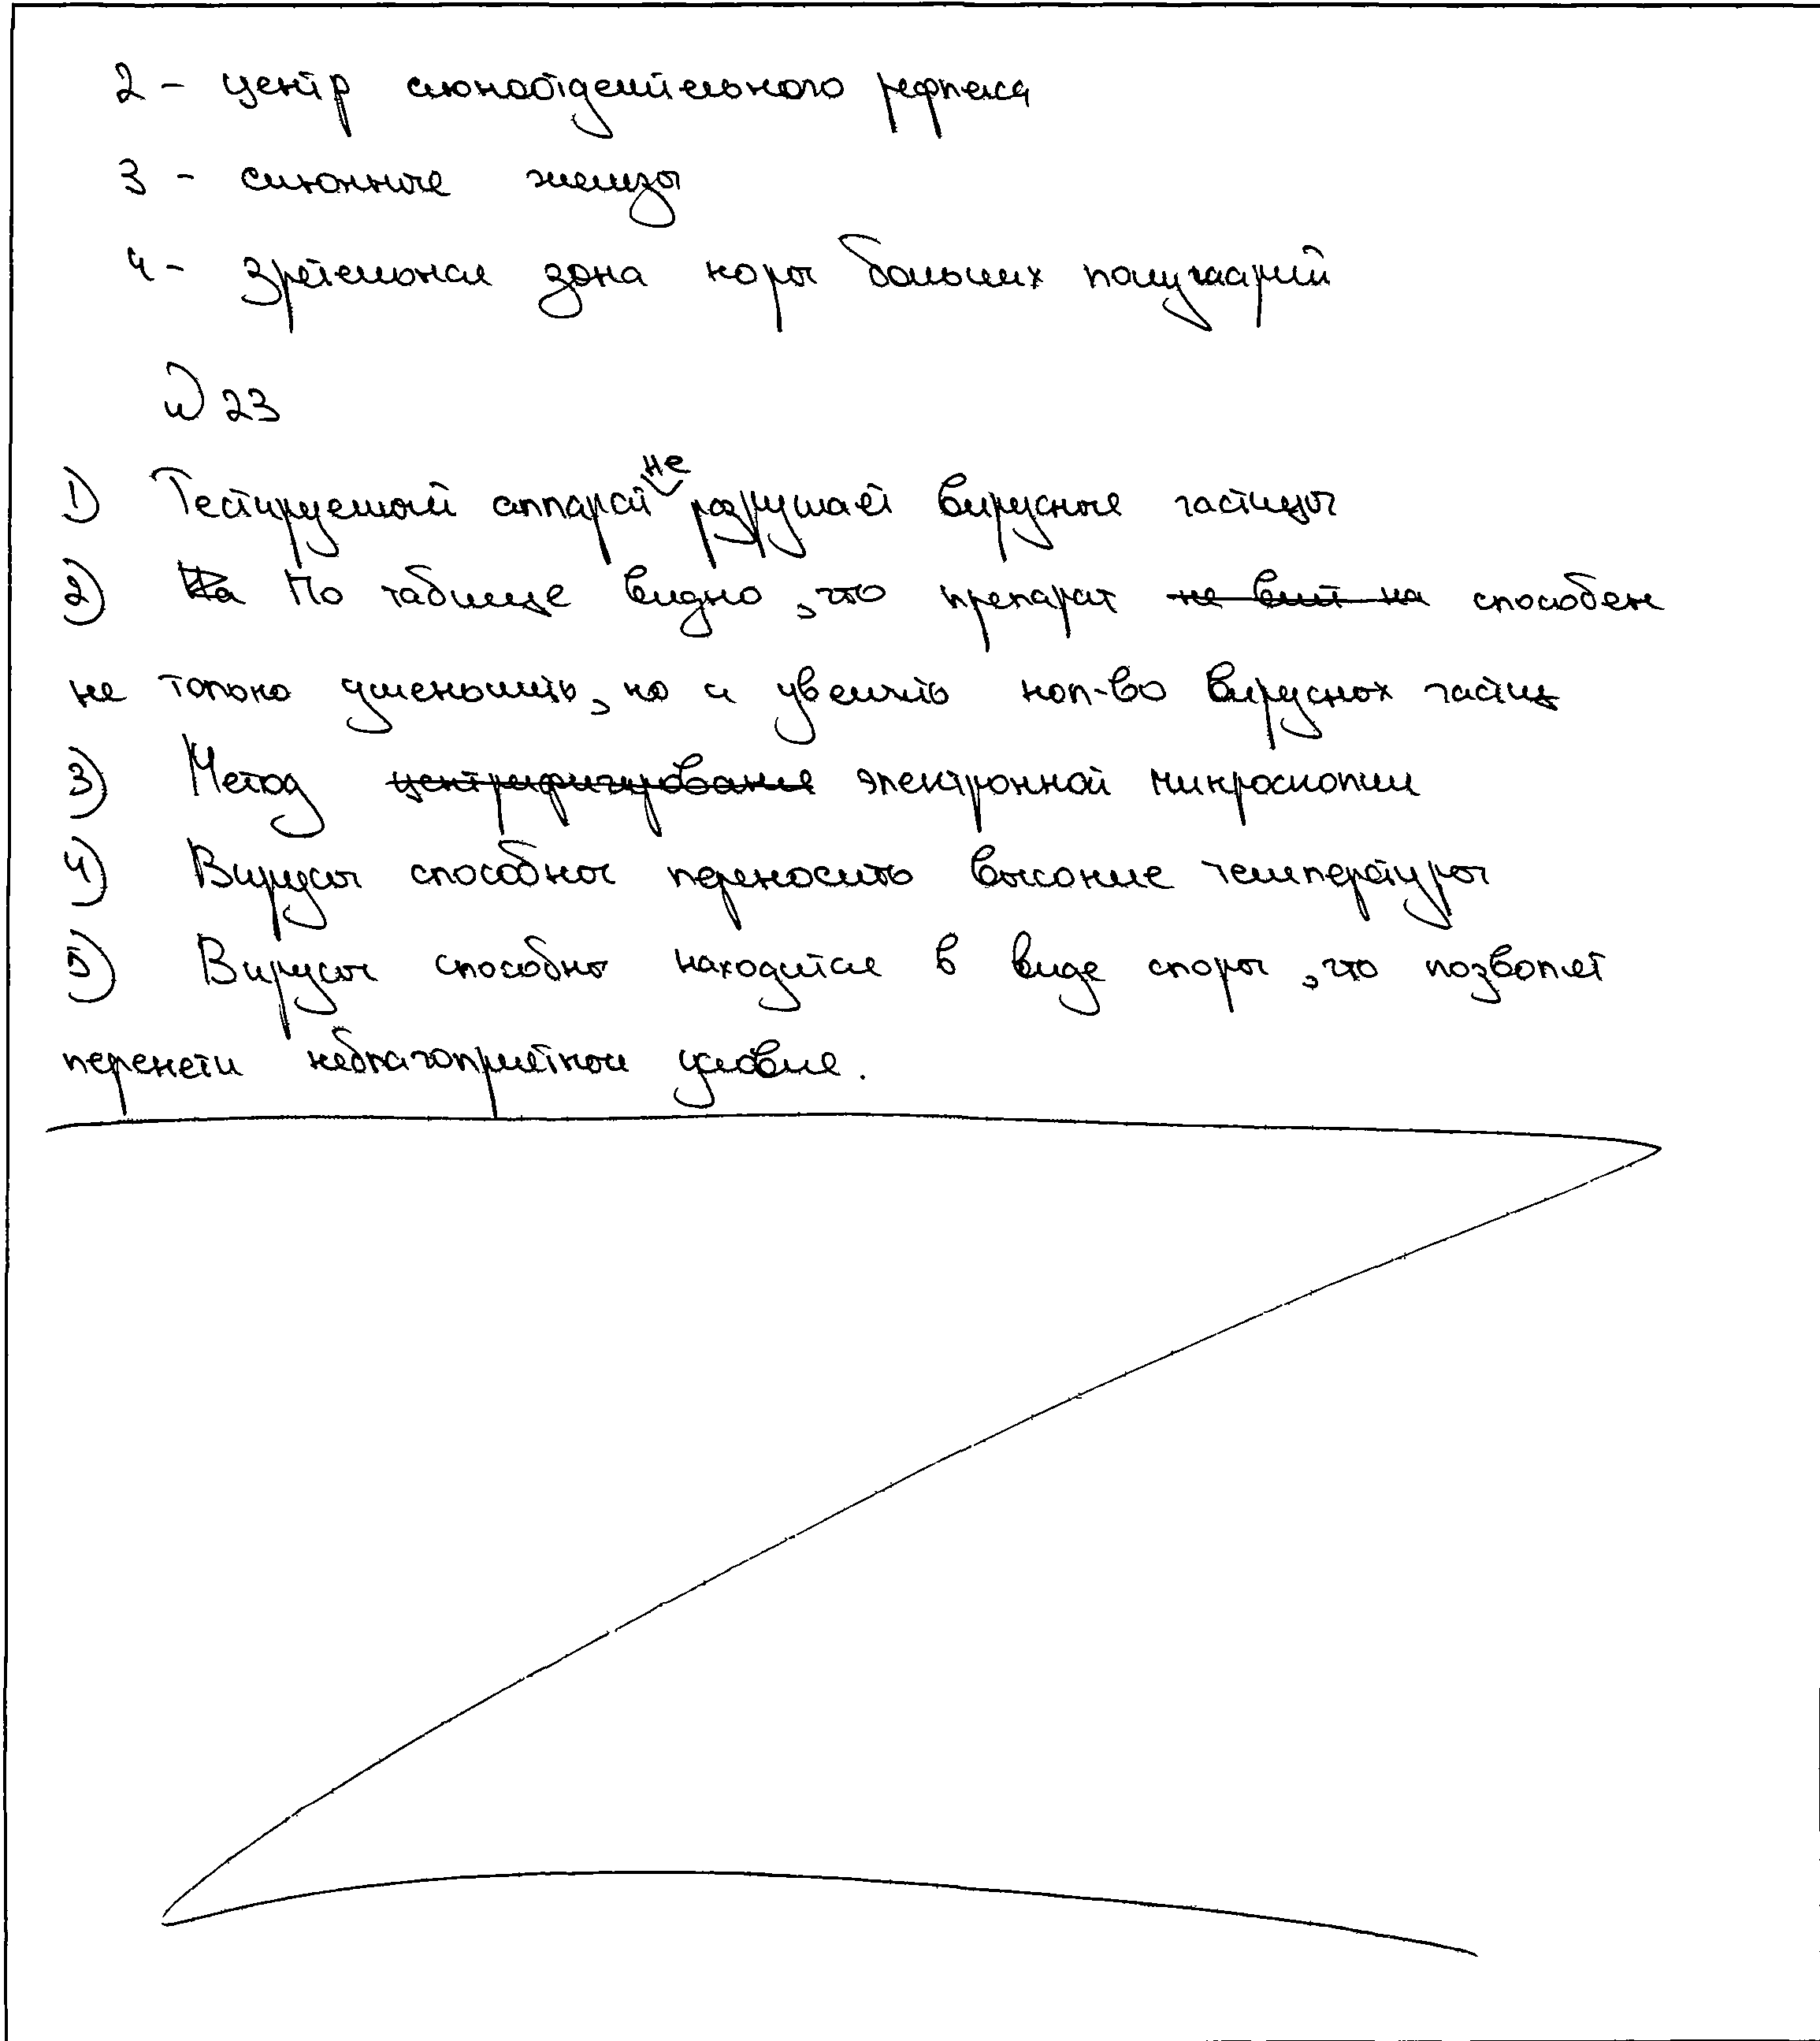 2 - центр слюноотделительного рефлекса
3 - слюнные железы
4 - зрительная зона коры больших полушарий
№ 23
1) Тестируемый аппарат не разрушает вирусные частицы
2) На По таблице видно, что препарат не вит на способен
не только уменьшить, но и увеличть кол-во вирусных частиц
3) Метод центрифигирования электронной микроскопии
4) Вирусы способны переносить высокие температуры
5) Вирусы способны находится в виде споры, что позволяет
перенети неблагоприятные условие.